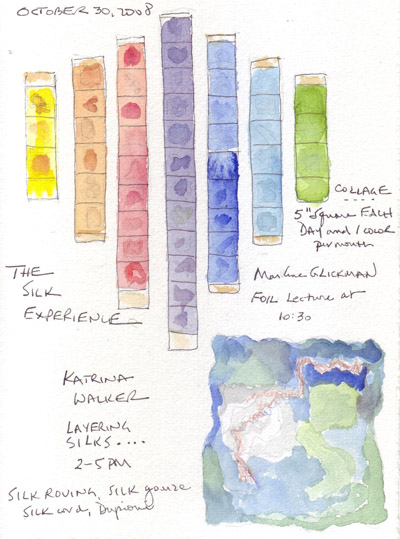 OCTOBER 30, 2008
COLLAGE
5" square EACH
DAY and 1 color
per month
THE
SILK
EXPERIENCE
Marlene GLICKMAN
FOIL Lecture at
10:30
KATRINA
WALKER
LAYERING
SILKS....
2-5 PM
SILK ROVING, SILK gauze
SILK cord, Dupioni